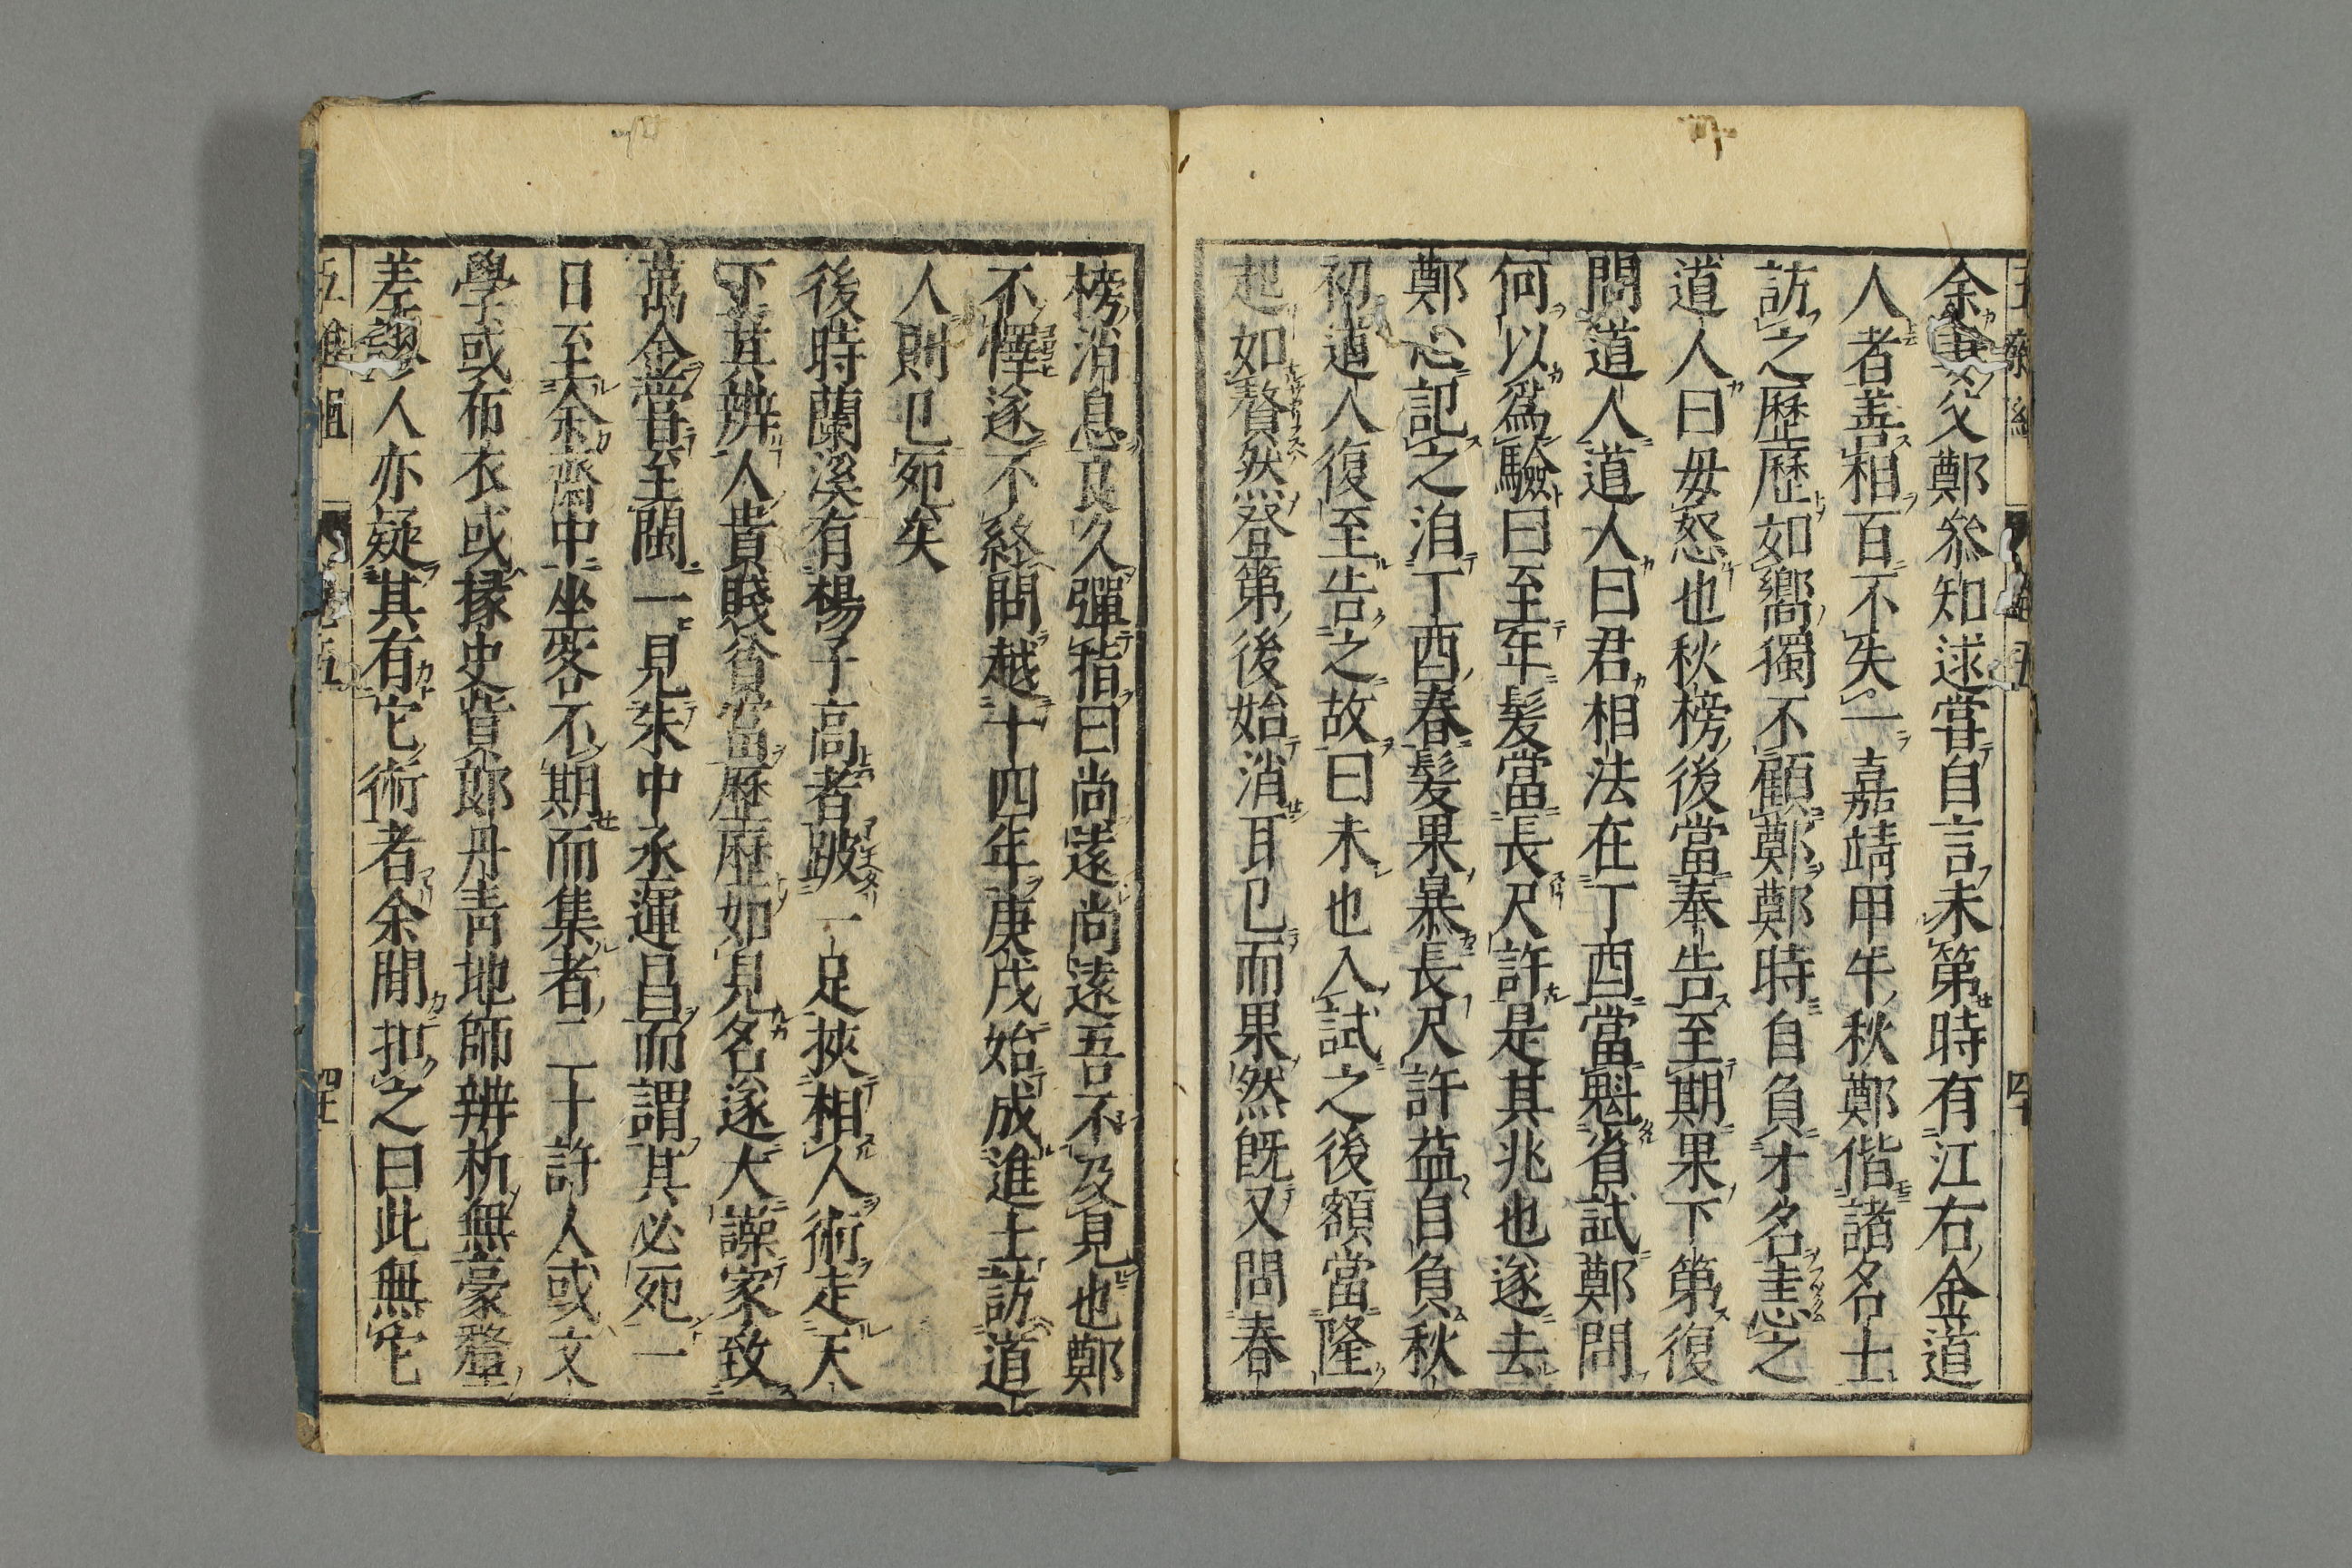 余婦父鄭參知逑嘗自言未第時有江右金道
人者善相百不失一嘉靖甲午秋鄭偕諸名士
訪之歷歷如嚮獨不顧鄭鄭時自負才名恚之
道人曰毋怒也秋榜後當奉告至期果下第復
問道人道人曰君相法在丁酉當魁省試鄭問
何以爲驗曰至年髮當長尺許是其兆也遂去
鄭心記之洎丁酉春髮果暴長尺許益自負秋
初道人復至告之故曰未也入試之後額當隆
起如贅然登第後始消耳已而果然既又問春
榜消息良久彈指曰尚遠尚遠吾不及見也鄭
不懌遂不終問越十四年庚戌始成進士訪道
人則已死矣
後時蘭溪有楊子高者跛一足挾相人術走天
下其辨人貴賤貧富歷歷如見名遂大譟家致
萬金嘗至閩一見朱中丞運昌而謂其必死一
日至余齋中坐客不期而集者二十許人或文
學或布衣或掾史貲郎丹青地師辨析無豪釐
差謬人亦疑其有它術者余閒扣之曰此無它
五雜組
卷五
四十